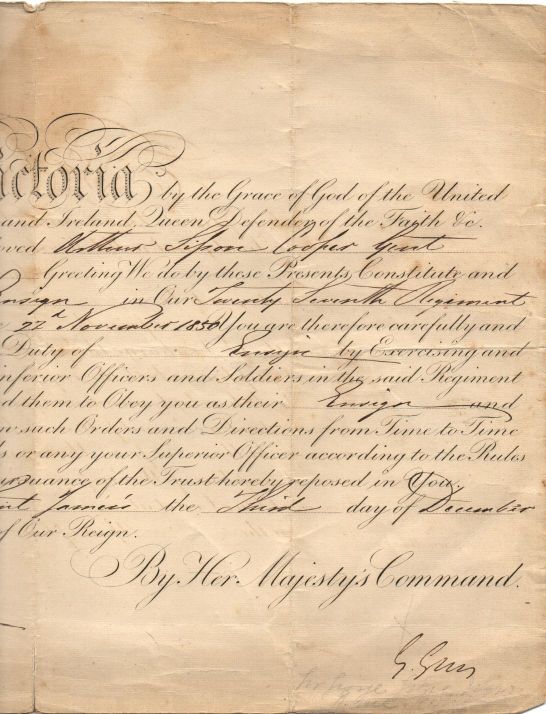 ictoria by the Grace of God of the United
and Ireland Queen Defender of the Faith &c.
oved Arthur Cooper Gent
Greeting We do by these Presents Constitute and
Ensign in Our Twenty Seventh Regiment
22d November 1850 You are therefore carefully and
Duty of Ensign by Exercising and
inferior Officers and Soldiers in the said Regiment
d them to Obey you as their Ensign and
w such Orders and Directions from Time to Time
s or any your Superior Officer according to the Rules
ursuance of the Trust hereby reposed in You.
int James's the Third day of December
of Our Reign.
By Her Majesty's Command.
G. Grey